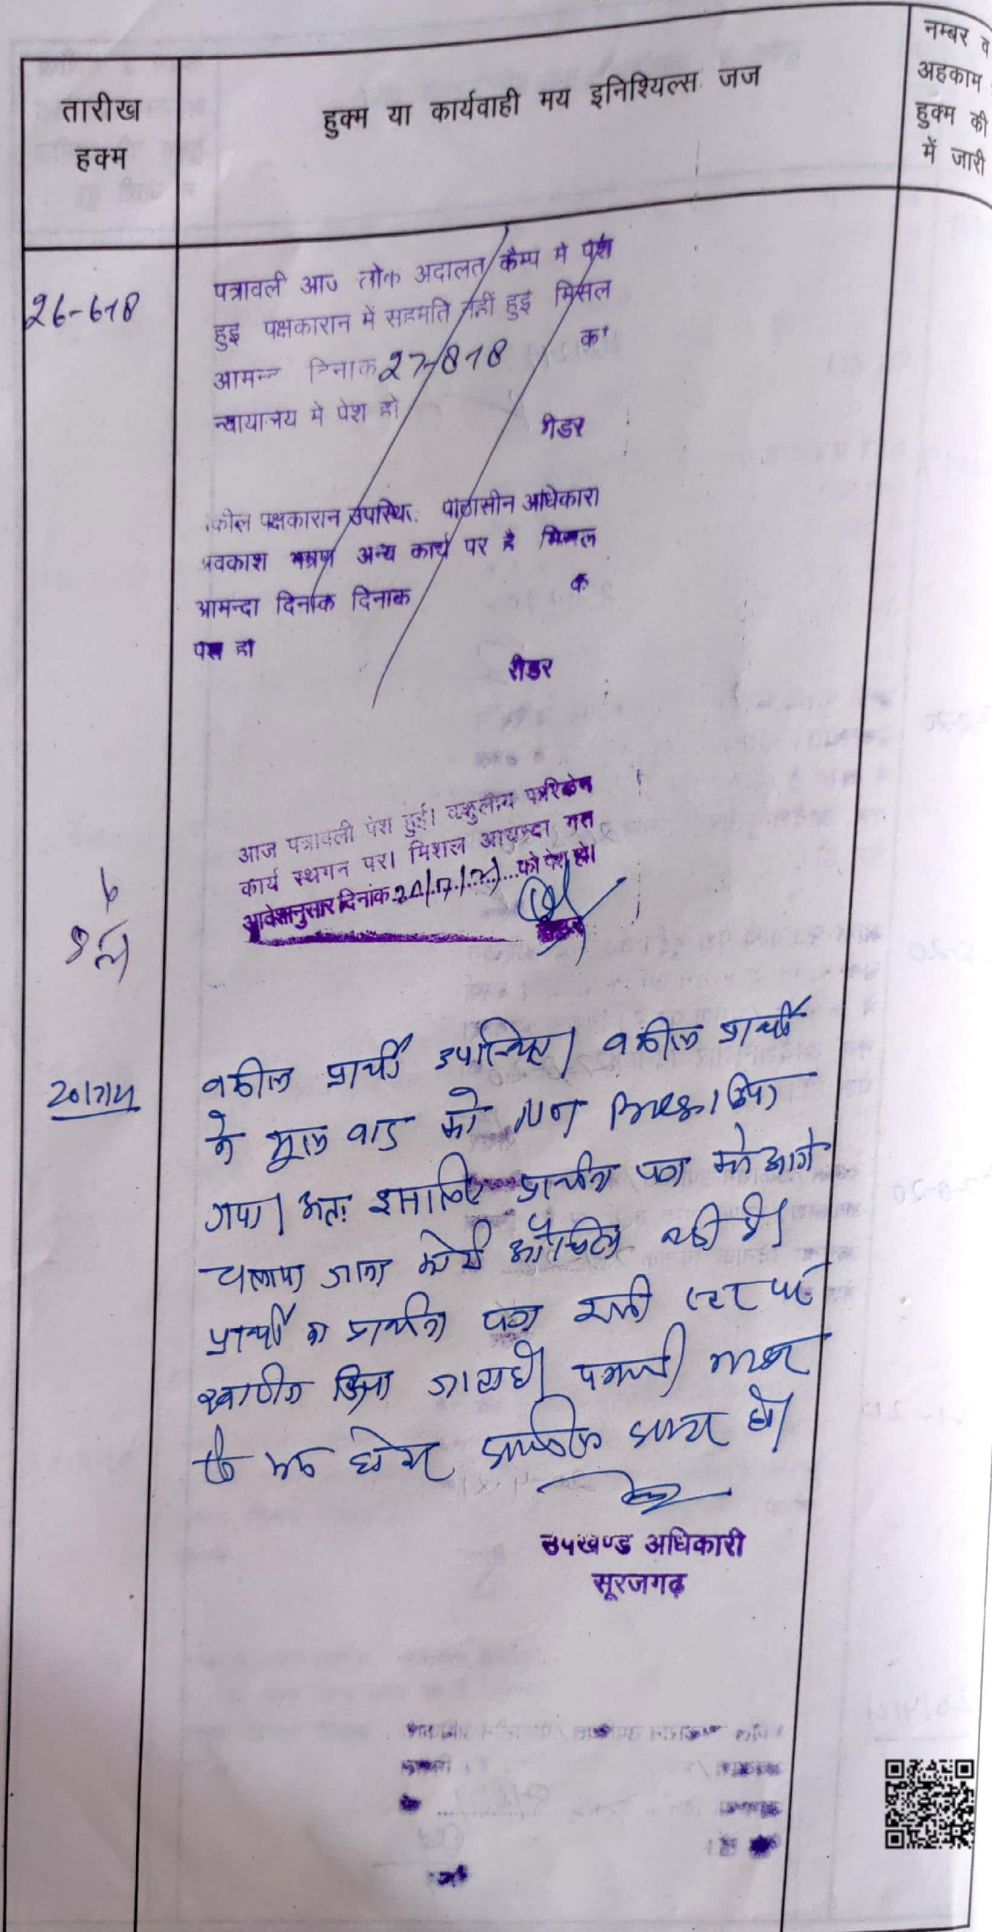 तारीख
हक्म
हुक्म या कार्यवाही मय इनिश्यिल्स जज
नम्बर व
अहकाम
हुक्म की
में जारी
26-618
पत्रावली आज लोक अदालत कैम्प मे पेश
हुइ पक्षकारान में सहमति नहीं हुइ मिसल
आमन्द दिनाक 27-818 को
न्यायालय मे पेश हो
रीडर
पक्षकारान उपस्थित. पीठासीन अधिकारी
अवकाश भम्रण अन्य कार्य पर है मिसल
आमन्दा दिनांक दिनाक क
पेश हो
रीडर
आज पत्रावली पेश हुई।
कार्य स्थगन पर। मिशल आयन्दा गत
आदेशानुसार दिनांक को पेश हो।
वकील प्रार्थी उपस्थित। वकील प्रार्थी
के मूल वाद को Not Press किया
गया। अतः इसलिए प्रार्थना पत्र को आगे
चलाया जाना कोई औचित्य नही है।
प्रार्थी का प्रार्थना पत्र इसी स्टेज पर
खारीज किया जाता है।
उपखण्ड अधिकारी
सूरजगढ़